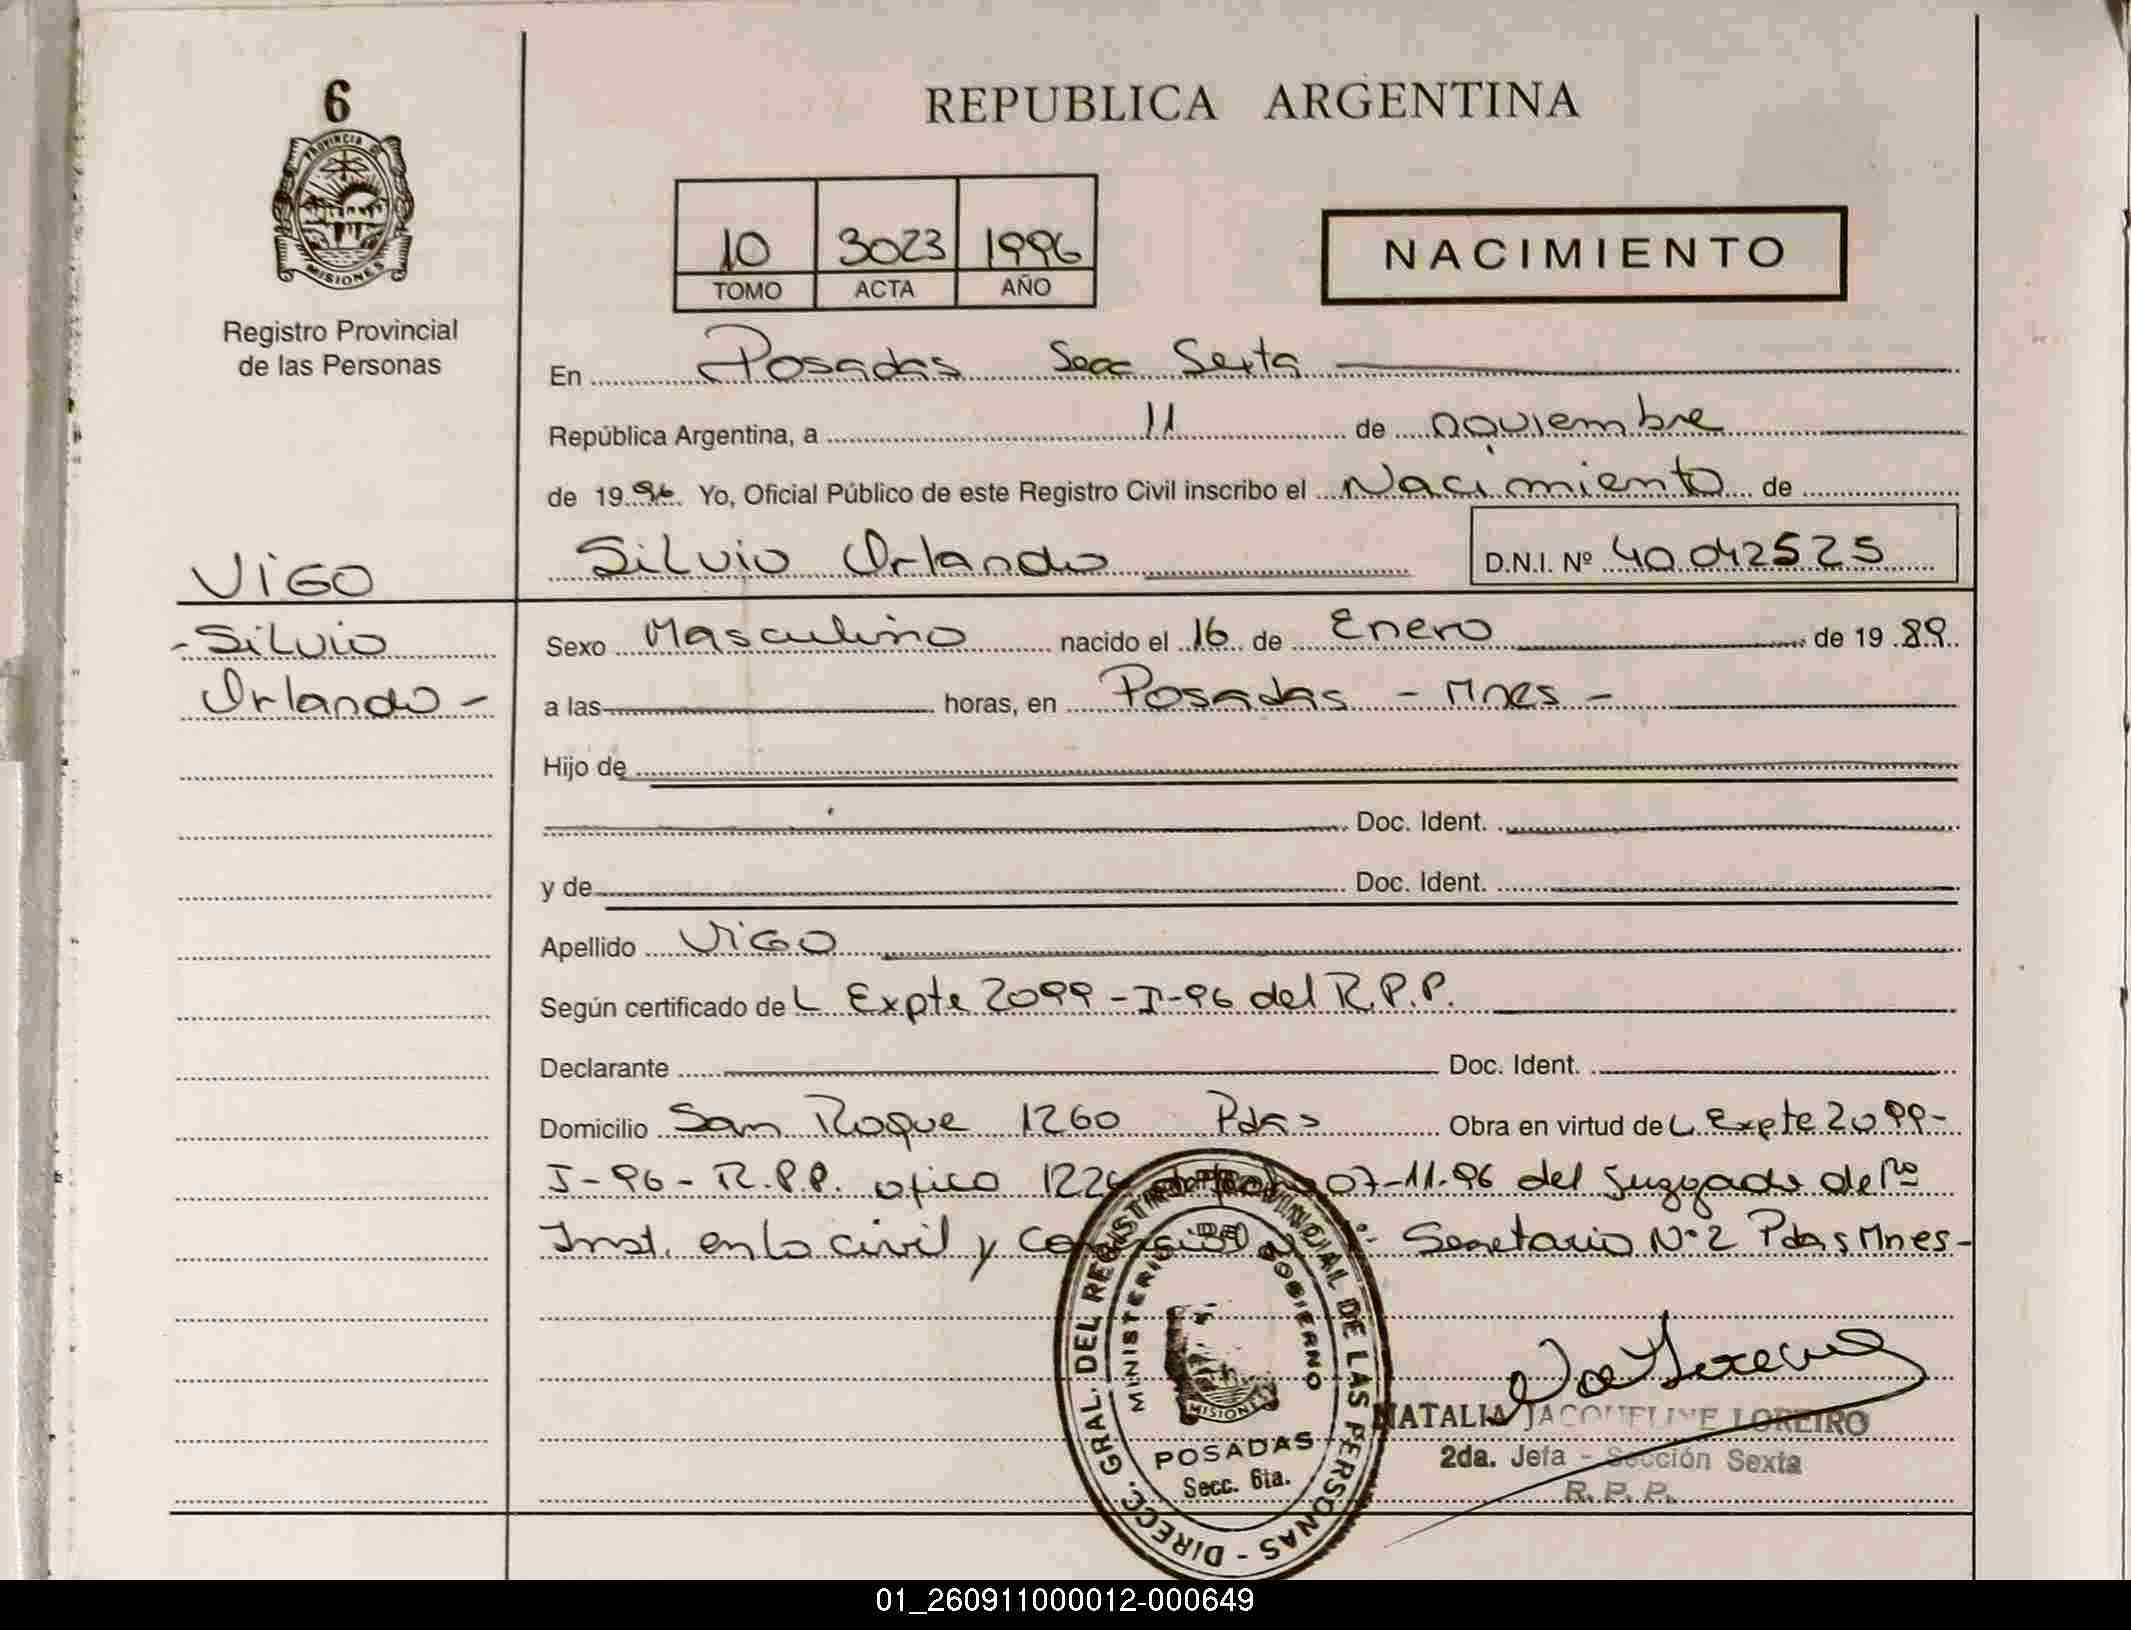 6
PROVINCIA D
MISIONES
Registro Provincial
de las Personas
REPUBLICA ARGENTINA
10 3023 1996
TOMO ACTA AÑO
NACIMIENTO
En Posadas Secc Sexta
República Argentina, a 11 de noviembre
de 1996 Yo, Oficial Público de este Registro Civil inscribo el Nacimiento de
VIGO
Silvio Orlando D.N.I. Nº 40.042525
- Silvio
Orlando -
Sexo Masculino nacido el 16 de Enero de 1989
a las horas, en Posadas - Mnes -
Hijo de
Doc. Ident.
y de Doc. Ident.
Apellido VIGO
Según certificado de L Expte 2099-I-96 del R.P.P.
Declarante Doc. Ident.
Domicilio San Roque 1260 Pdas Obra en virtud de L Expte 2099-
I-96-R.P.P. oficio 07-11-96 del Juzgado de 1ro
Inst. en lo civil y Secretario Nº2 Pdas Mnes-
DIRECC. GRAL. DEL REGISTRO PROVINCIAL DE LAS PERSONAS -
MINISTERIO DE GOBIERNO
MISIONES
POSADAS
Secc. 6ta.
NATALIA JACQUELINE LOREIRO
2da. Jefa - Sección Sexta
R.P.P.
01_260911000012-000649